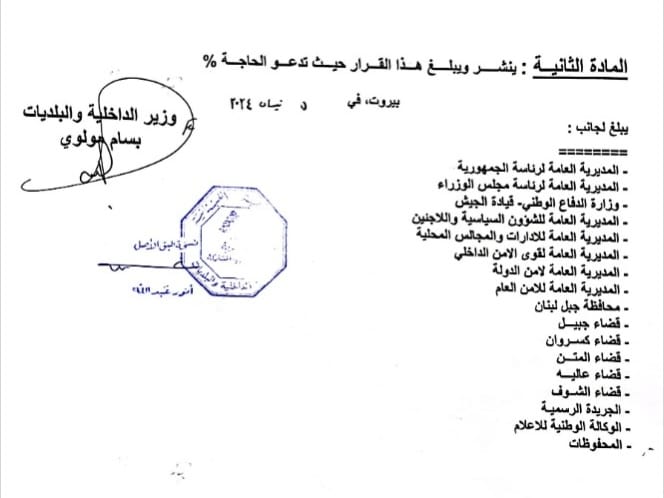 المادة الثانية : ينشر ويبلغ هذا القرار حيث تدعو الحاجة %
بيروت، في ٥ نيسان ٢٠٢٤
وزير الداخلية والبلديات
بسام مولوي
يبلغ لجانب :
========
- المديرية العامة لرئاسة الجمهورية
- المديرية العامة لرئاسة مجلس الوزراء
- وزارة الدفاع الوطني- قيادة الجيش
- المديرية العامة للشؤون السياسية واللاجئين
- المديرية العامة للادارات والمجالس المحلية
- المديرية العامة لقوى الامن الداخلي
- المديرية العامة لامن الدولة
- المديرية العامة للامن العام
- محافظة جبل لبنان
- قضاء جبيل
- قضاء كسروان
- قضاء المتن
- قضاء عاليه
- قضاء الشوف
- الجريدة الرسمية
- الوكالة الوطنية للاعلام
- المحفوظات
نسخة طبق الأصل
أنور عبد الله
الداخلية والبلديات